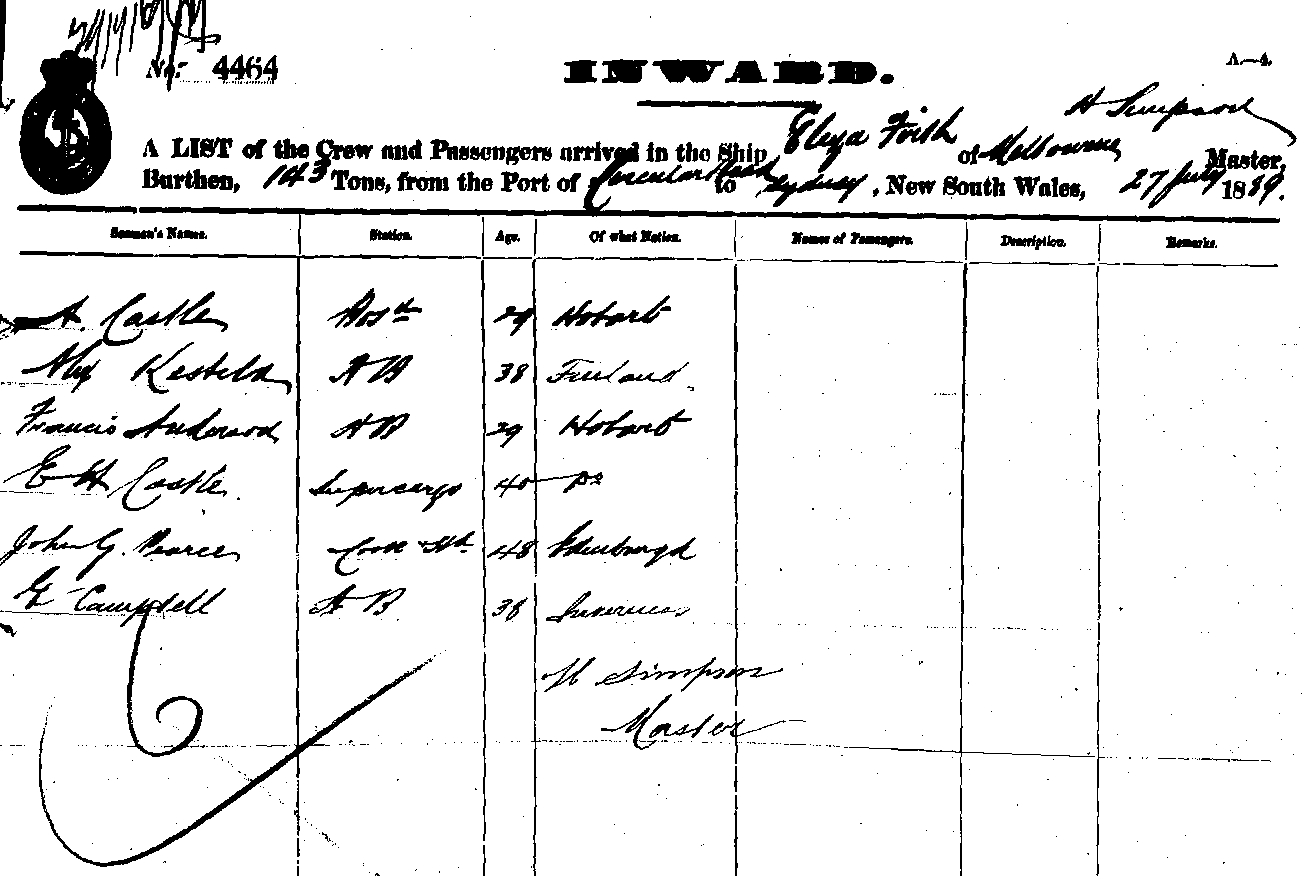 No. 4464
INWARD.
A.—4.
A LIST of the Crew and Passengers arrived in the Ship Eliza Firth of Melbourne H Simpson Master,
Burthen, 143 Tons, from the Port of Circular Head to Sydney, New South Wales, 27 July 1889.
Seaman's Names. Station. Age. Of what Nation. Names of Passengers. Description. Remarks.
A. Castle 29 Hobart
Alex AB 38 Finland
Francis Anderson AB 29 Hobart
E H Castle Supercargo 40 Do
John G. Pearce Cook 48 Edinburgh
G Campbell AB 38 Inverness
H Simpson
Master